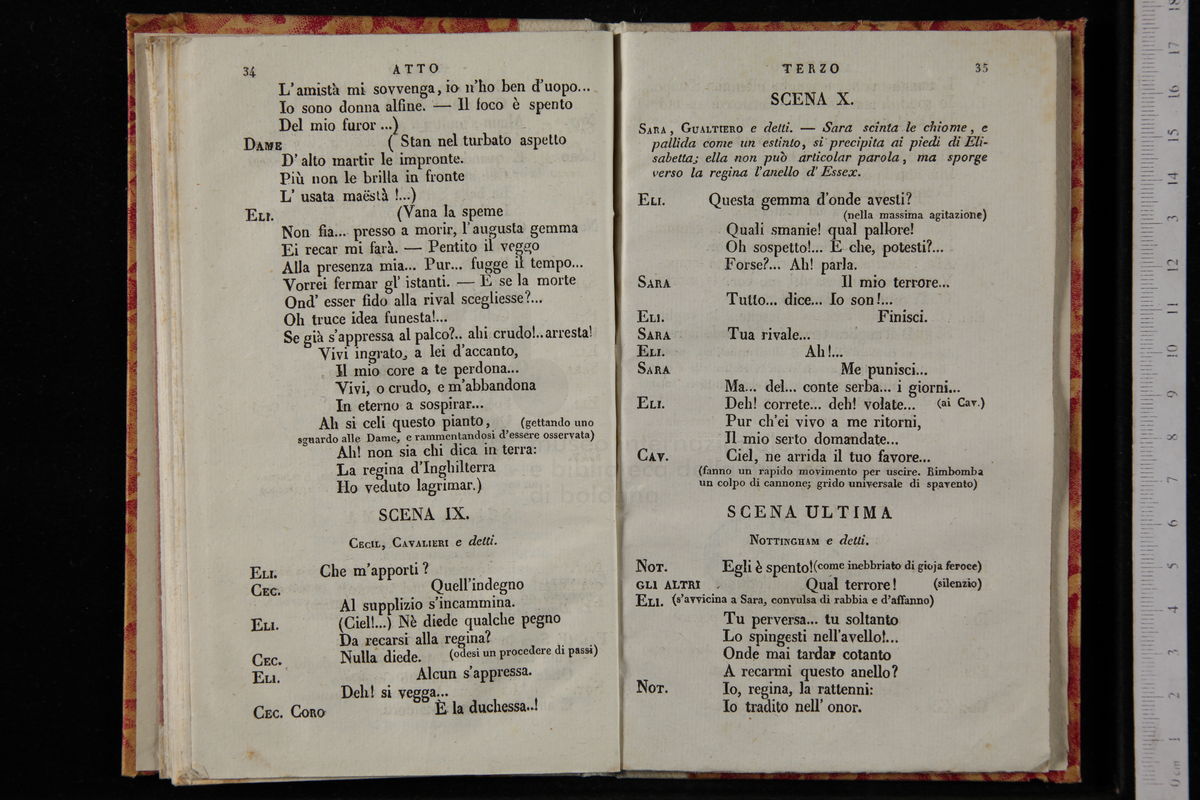 34 ATTO
L'amistà mi sovvenga, io n'ho ben d'uopo...
Io sono donna alfine. — Il foco è spento
Del mio furor...)
DAME ( Stan nel turbato aspetto
D'alto martir le impronte.
Più non le brilla in fronte
L'usata maëstà !...)
ELI. (Vana la speme
Non fia... presso a morir, l'augusta gemma
Ei recar mi farà. — Pentito il veggo
Alla presenza mia... Pur... fugge il tempo...
Vorrei fermar gl'istanti. — E se la morte
Ond'esser fido alla rival scegliesse?...
Oh truce idea funesta!...
Se già s'appressa al palco?.. ahi crudo!..arresta!
Vivi ingrato, a lei d'accanto,
Il mio core a te perdona...
Vivi, o crudo, e m'abbandona
In eterno a sospirar...
Ah si celi questo pianto, (gettando uno
sguardo alle Dame, e rammentandosi d'essere osservata)
Ah! non sia chi dica in terra:
La regina d'Inghilterra
Ho veduto lagrimar.)
SCENA IX.
CECIL, CAVALIERI e detti.
ELI. Che m'apporti ?
CEC. Quell'indegno
Al supplizio s'incammina.
ELI. (Ciel!...) Nè diede qualche pegno
Da recarsi alla regina?
CEC. Nulla diede. (odesi un procedere di passi)
ELI. Alcun s'appressa.
Deh! si vegga...
CEC. CORO È la duchessa..!
TERZO 35
SCENA X.
SARA, GUALTIERO e detti. — Sara scinta le chiome, e
pallida come un estinto, si precipita ai piedi di Eli-
sabetta; ella non può articolar parola, ma sporge
verso la regina l'anello d'Essex.
ELI. Questa gemma d'onde avesti?
(nella massima agitazione)
Quali smanie! qual pallore!
Oh sospetto!... E che, potesti?...
Forse?... Ah! parla.
SARA Il mio terrore...
Tutto... dice... Io son!...
ELI. Finisci.
SARA Tua rivale...
ELI. Ah!...
SARA Me punisci...
Ma... del... conte serba... i giorni...
ELI. Deh! correte... deh! volate... (ai Cav.)
Pur ch'ei vivo a me ritorni,
Il mio serto domandate...
CAV. Ciel, ne arrida il tuo favore...
(fanno un rapido movimento per uscire. Rimbomba
un colpo di cannone; grido universale di spavento)
SCENA ULTIMA
NOTTINGHAM e detti.
NOT. Egli è spento!(come inebbriato di gioja feroce)
GLI ALTRI Qual terrore! (silenzio)
ELI. (s'avvicina a Sara, convulsa di rabbia e d'affanno)
Tu perversa... tu soltanto
Lo spingesti nell'avello!...
Onde mai tardar cotanto
A recarmi questo anello?
NOT. Io, regina, la rattenni:
Io tradito nell'onor.